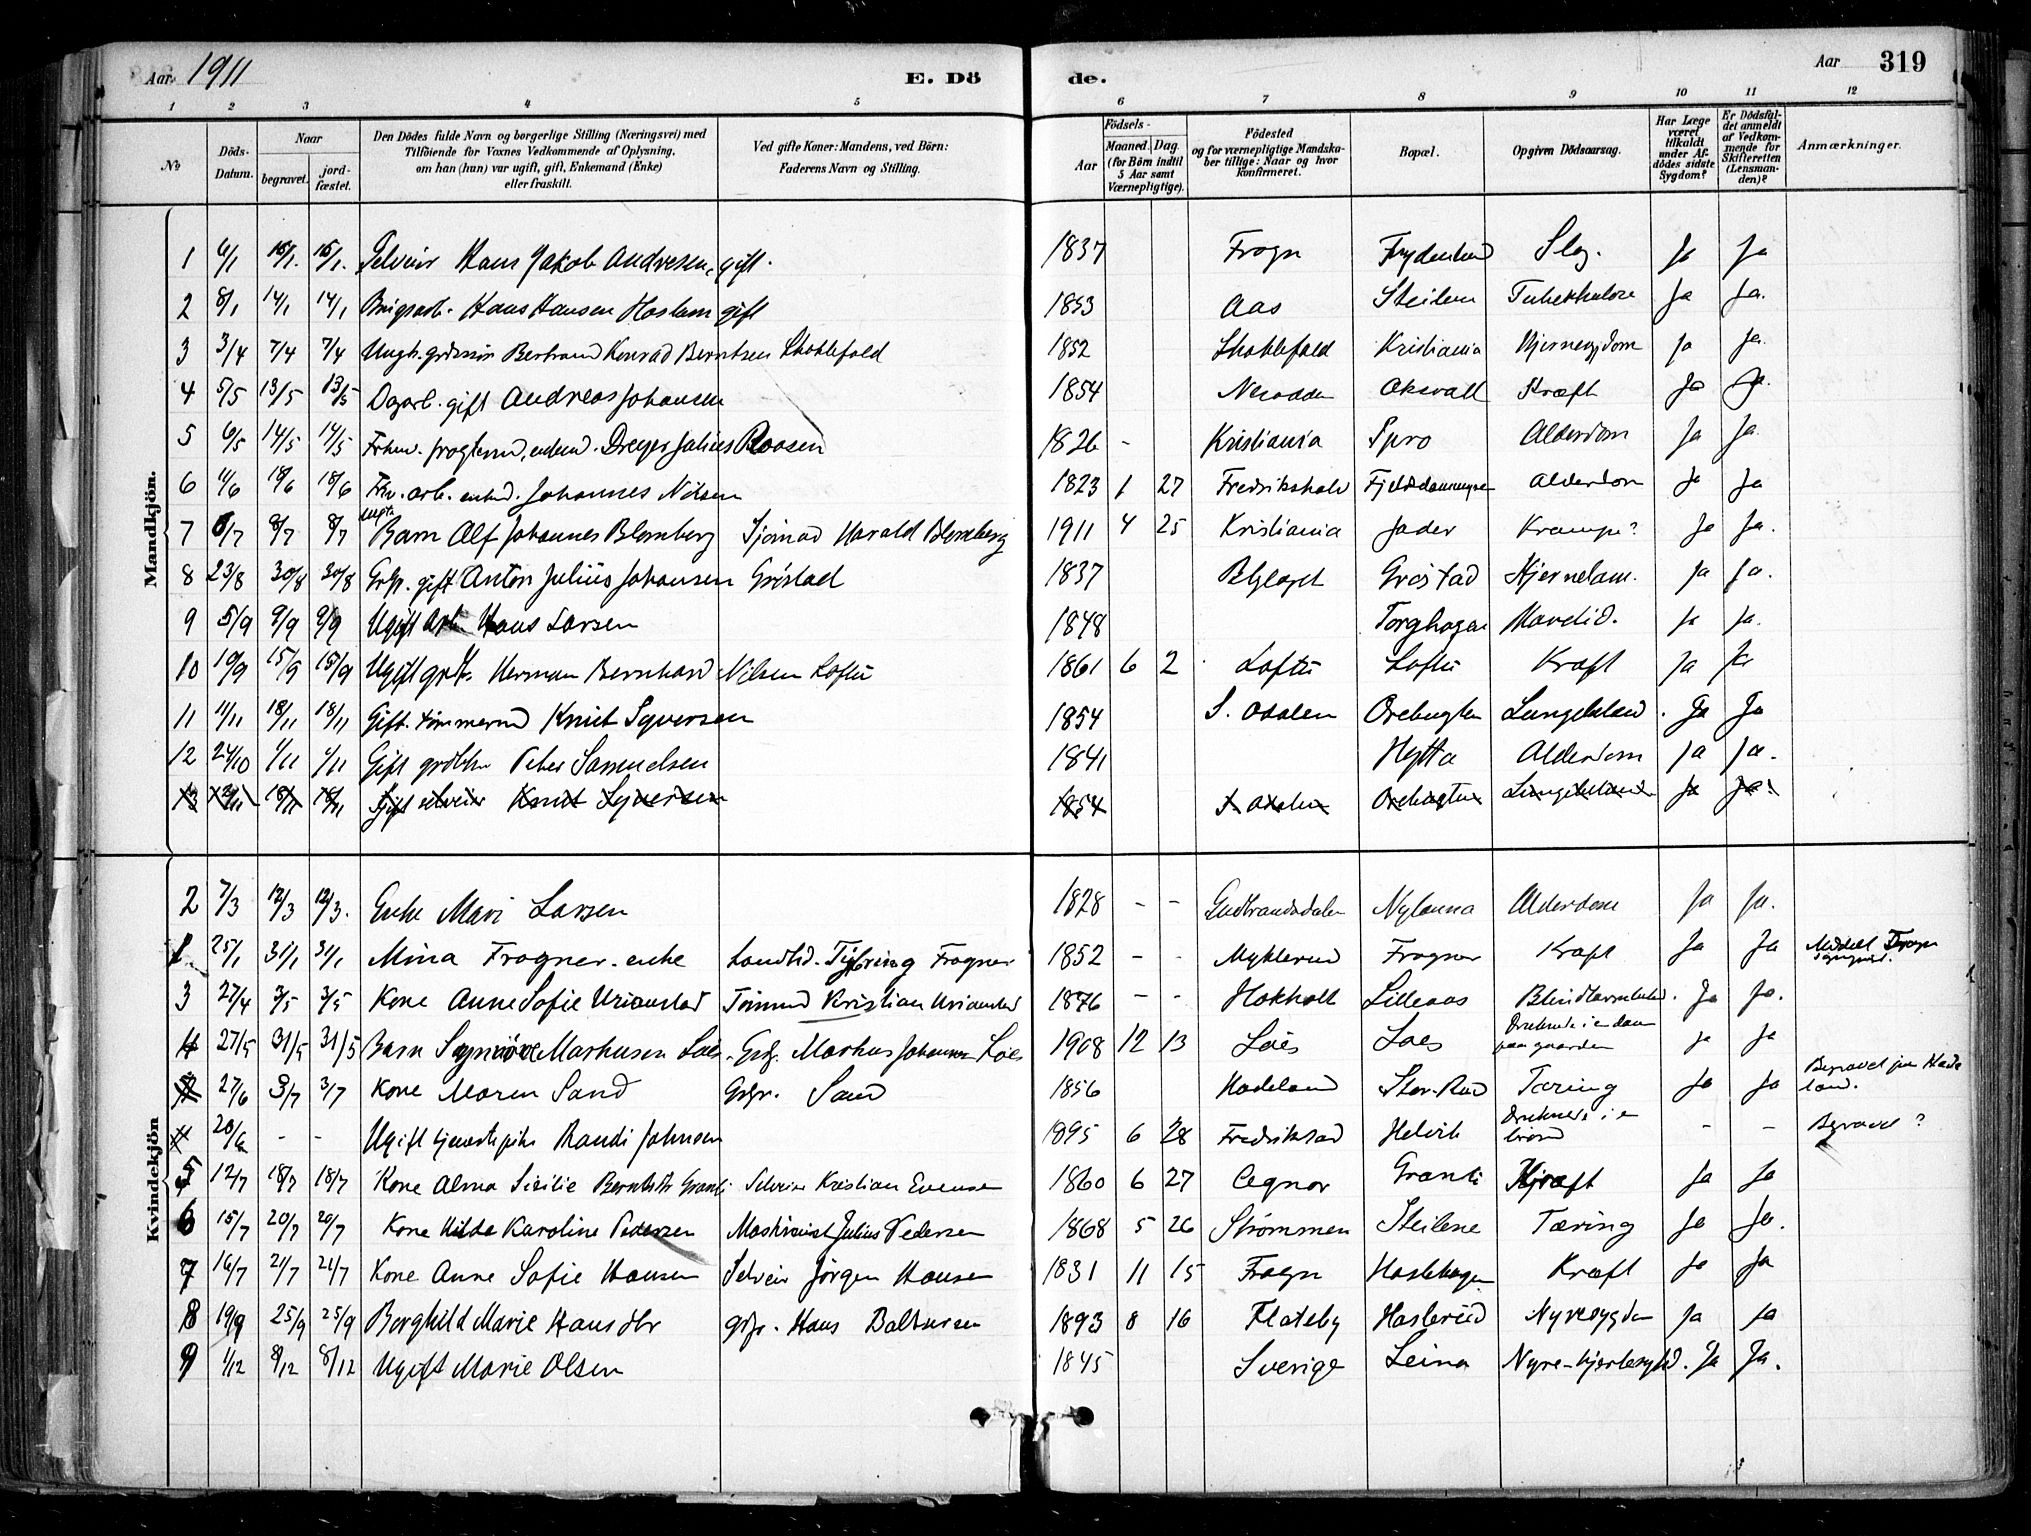 Aar 1911 E. Döde. Aar 319
1 2 3 4 5 6 7 8 9 10 11 12
No
Döds-Datum.
Naar
begravet.
jord-fæstet.
Den Dödes fulde Navn og borgerlige Stilling (Næringsvei) med
Tilföiende for Voxnes Vedkommende af Oplysning,
om han (hun) var ugift, gift, Enkemand (Enke)
eller fraskilt.
Ved gifte Koner: Mandens, ved Börn:
Faderens Navn og Stilling.
Födsels-
Aar
Maaned. Dag.
(for Börn indtil
5 Aar samt
Værnepligtige).
Födested
og for værnepligtige Mandska-
ber tillige: Naar og hvor
konfirmeret.
Bopæl.
Opgiven Dödsaarsag.
Har Læge
været
tilkaldt
under Af-
dödes sidste
Sygdom?
Er Dödsfal-
det anmeldt
af Vedkom-
mende for
Skifteretten
(Lensman-
den)?
Anmærkninger.
Mandkjön.
1 6/1 15/1. 15/1. Selveier Hans Jakob Andresen, gift. 1837 Frogn Frydenlund Slag. Ja Ja
2 8/1 14/1 14/1 Hans Hansen Haslum gift 1853 Aas Steilene Tuberkulose Ja Ja.
3 3/4 7/4 7/4 Ungk. grosserer Bertrand Konrad Berntsen Skoklefald 1852 Skoklefald Kristiania Hjernesygdom Ja Ja.
4 5/5 13/5 13/5 Dagarb. gift Andreas Johansen 1854 Nesodden Oksvall Kræft Ja Ja.
5 6/5 14/5 14/5 Dreyer Julius Roosen 1826 - Kristiania Spro Alderdom Ja Ja.
6 11/6 18/6 18/6 Fhv. arb. enkem. Johannes Nilsen 1823 1 27 Fredrikshald Alderdom Ja Ja
7 6/7 8/7 8/7 Barn Alf Johannes Blomberg Sjømand Harald Blomberg 1911 4 25 Kristiania Jader Krampe? Ja Ja.
8 23/8 30/8 30/8 Grbr. gift Anton Julius Johansen Gröstad 1837 Gröstad Hjernelam. Ja Ja.
9 5/9 9/9 9/9 Ugift Arb. Hans Larsen 1848 Torghagen Ja Ja.
10 10/9 15/9 15/9 Ugift grbr. Herman Bernhard Nilsen Loftu 1861 6 2 Loftu Loftu Kræft Ja Ja
11 11/11 18/11 18/11 Gift. tømmermd Knut Syversen 1854 S. Odalen Orebugten Lungebetænd. Ja Ja
12 24/10 1/11 1/11 Gift Peter Samuelsen 1841 Hytta Alderdom Ja Ja.
13 18/11 18/11 Gift selveier Knut Syversen 1854 S. Odalen Orebugten Lungebetænd Ja Ja.
Kvindekjön
2 7/3 12/3 12/3. Enke Mari Larsen 1828 - - Gudbrandsdalen Nylanna Alderdom Ja Ja.
1 25/1 31/1 31/1 Mina Frogner. enke Frogner 1852 - - Myklerud Frogner Kræft Ja Ja
3 27/4 3/5 3/5 Kone Anne Sofie Urianstad Kristian Urianstad 1876 - - Hokholt Lilleaas Ja Ja.
4 27/5 31/5 31/5 Barn Synnöve Markusen Løes. Grbr. Markus Johannesen Løes 1908 12 13 Løes Løes Druknede i en dam paa gaarden Ja Ja
27/6 3/7 3/7 Kone Maren Sand Grbr. Sand 1856 Hadeland Stor-Rud Tæring Ja Ja Begravet paa Hadeland.
20/6 - - Ugift tjenestepike Randi Johnsen 1895 6 28 Fredrikstad Helvik Druknede i en brønd - - Begravet ?
5 12/7 18/7 18/7 Kone Alma Sicilie Granli Selveier Kristian Evensen 1860 6 27 Granli Kræft Ja Ja
6 15/7 20/7 20/7 Kone Hilda Karoline Pedersen Maskinist Julius Pedersen 1868 5 26 Strømmen Steilene Tæring Ja Ja.
7 16/7 21/7 21/7 Kone Anne Sofie Hansen Selveier Jörgen Hansen 1831 11 15 Frogn Haslehagen Kræft Ja Ja
8 19/9 25/9 25/9 Borghild Marie Hansdtr grbr. Hans Baltersen 1893 8 16 Flateby Haslerud Nyresygdom Ja Ja
9 1/12 8/12 8/12 Ugift Marie Olsen 1845 Sverige Leina Nyre-hjertesygd. Ja Ja.